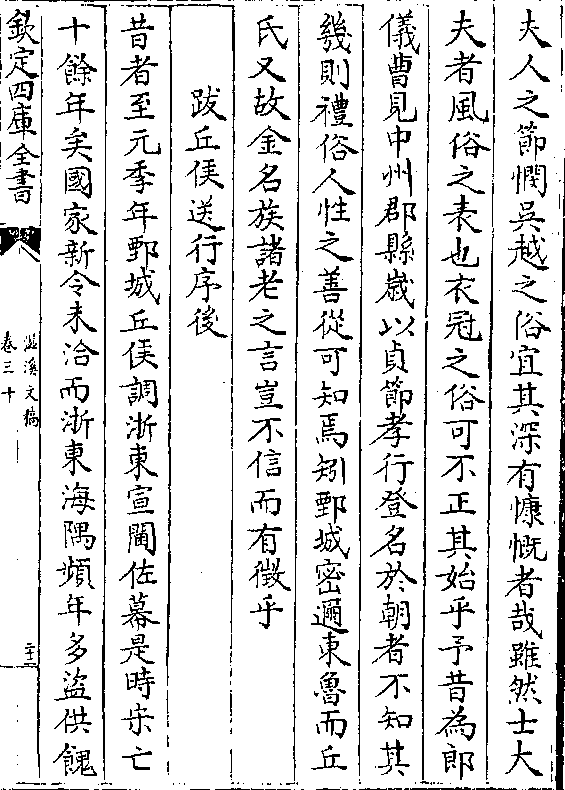 夫人之節憫吳越之俗宜其深有慷慨者哉雖然士大
夫者風俗之表也衣冠之俗可不正其始乎予昔為郎
儀曹見中州郡縣嵗以貞節孝行登名於朝者不知其
幾則禮俗人性之善從可知焉矧鄄城密邇東魯而丘
氏又故金名族諸老之言豈不信而有徵乎
跋丘侯送行序後
昔者至元季年鄄城丘侯調浙東宣閫佐幕是時宋亡
十餘年矣國家新令未洽而浙東海隅頻年多盜供餽
欽定四庫全書
滋溪文稿
卷三十
二十二